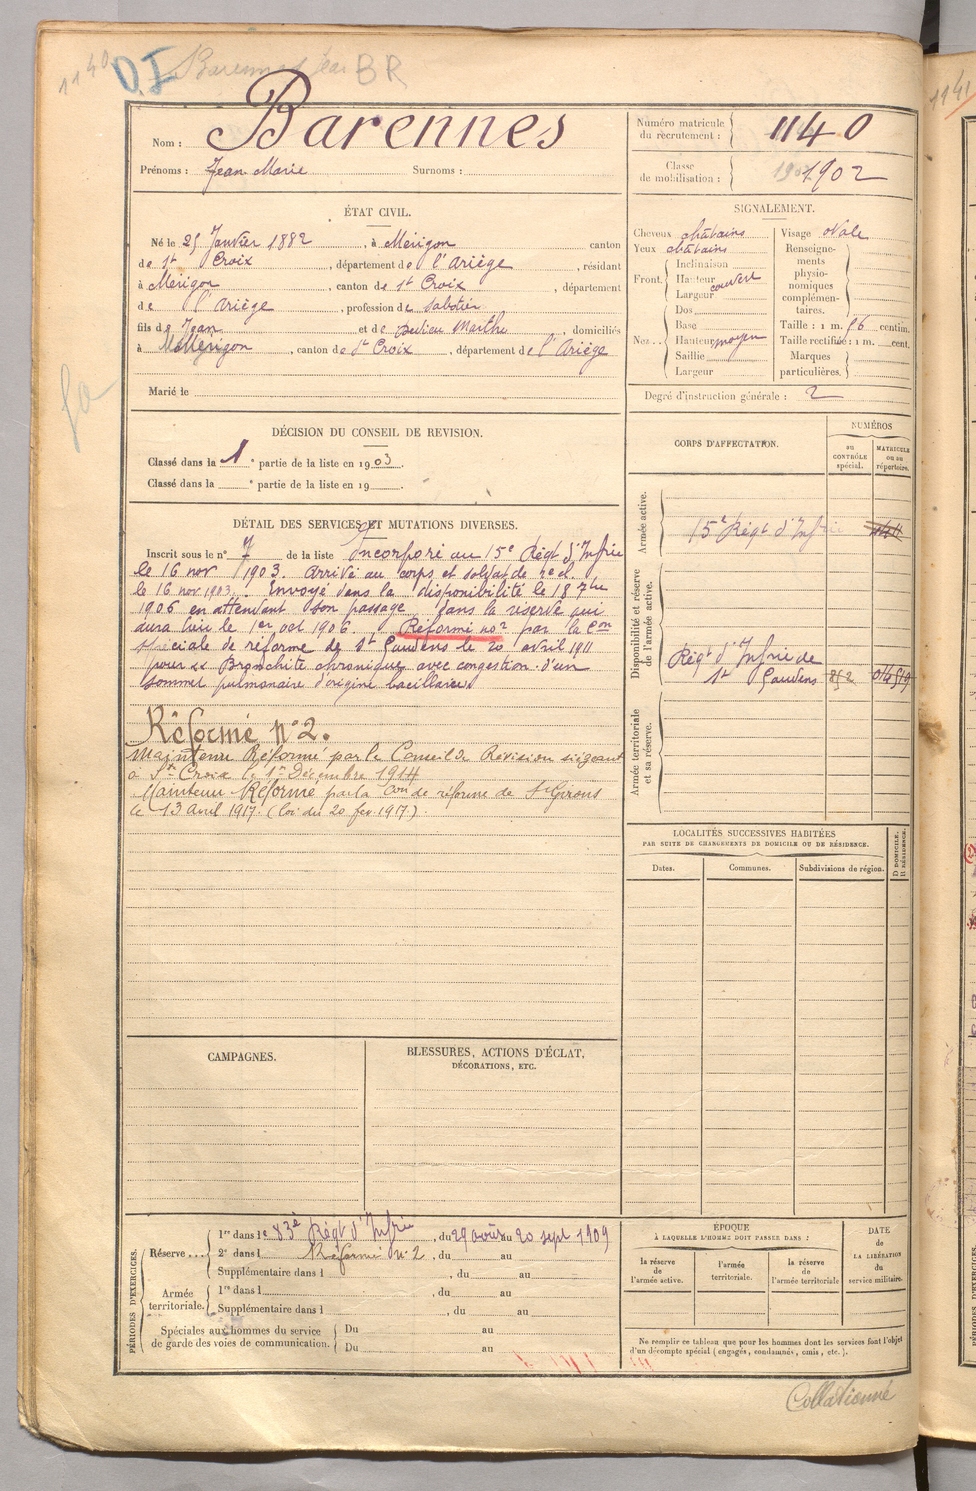 1140 D.I Barennes Jean BR
Nom : Barennes
Prénoms : Jean Marie Surnoms :
Numéro matricule
du recrutement : 1140
Classe
de mobilisation : 1902
ÉTAT CIVIL.
Né le 25 Janvier 1882, à Mérigon canton
de Ste Croix, département de l'Ariège, résidant
à Mérigon, canton de Ste Croix, département
de l'Ariège, profession de Sabotier
fils de Jean et de Marthe, domiciliés
à Mérigon, canton de Ste Croix, département de l'Ariège
Marié le
SIGNALEMENT.
Cheveux châtains
Yeux châtains
Front. Inclinaison
Hauteur couvert
Largeur
Nez.. Dos
Base
Hauteur moyen
Saillie
Largeur
Visage ovale
Renseigne-
ments
physio-
nomiques
complémen-
taires.
Taille : 1 m. 56 centim.
Taille rectifiée : 1 m. cent.
Marques
particulières.
Degré d'instruction générale : 2
DÉCISION DU CONSEIL DE REVISION.
Classé dans la 1e partie de la liste en 1903.
Classé dans la e partie de la liste en 19
CORPS D'AFFECTATION.
NUMÉROS
au
CONTRÔLE
spécial.
MATRICULE
ou au
répertoire.
Armée active.
15e Régt d'Infrie
Disponibilité et réserve
de l'armée active.
Régt d'Infrie de
St Gaudens 852
Armée territoriale
et sa réserve.
DÉTAIL DES SERVICES ET MUTATIONS DIVERSES.
Inscrit sous le n° 7 de la liste Incorporé au 15e Régt d'Infrie
le 16 nov 1903. Arrivé au corps et soldat de 2e cl.
le 16 nov 1903. Envoyé dans la disponibilité le 18 7bre
1906 en attendant son passage dans la réserve qui
aura lieu le 1er oct 1906 Réformé no 2 par la Con
spéciale de réforme de St Gaudens le 20 avril 1911
pour « Bronchite chronique avec congestion d'un
sommet pulmonaire d'origine bacillaire.
Réformé n° 2.
Maintenu Réformé par le Conseil de Revision siégeant
à Ste Croix le 1er Décembre 1914
Maintenu Réformé par la Con de réforme de St Girons
le 13 Avril 1917. (loi du 20 fev. 1917).
LOCALITÉS SUCCESSIVES HABITÉES
PAR SUITE DE CHANGEMENTS DE DOMICILE OU DE RÉSIDENCE.
Dates. Communes. Subdivisions de région. D DOMICILE. R RÉSIDENCE.
CAMPAGNES.
BLESSURES, ACTIONS D'ÉCLAT,
DÉCORATIONS, ETC.
PÉRIODES D'EXERCICES.
Réserve... 1re dans le 83e Régt d'Infrie, du 29 août au 20 sept 1909
2e dans l Réformé n° 2, du au
Supplémentaire dans l, du au
Armée
territoriale. 1re dans l, du au
Supplémentaire dans l, du au
Spéciales aux hommes du service
de garde des voies de communication. Du au
Du au
ÉPOQUE
À LAQUELLE L'HOMME DOIT PASSER DANS :
la réserve
de
l'armée active.
l'armée
territoriale.
la réserve
de
l'armée territoriale
DATE
de
LA LIBÉRATION
du
service militaire.
Ne remplir ce tableau que pour les hommes dont les services font l'objet
d'un décompte spécial (engagés, condamnés, omis, etc.).
Collationné
1141